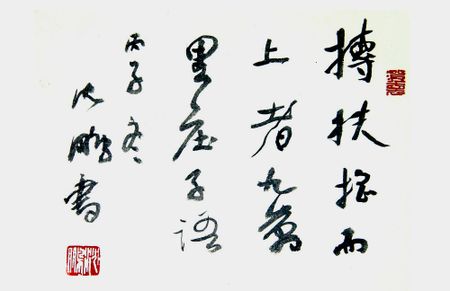 摶扶摇而
上者九萬
里庄子语
丙子冬
沈鹏書